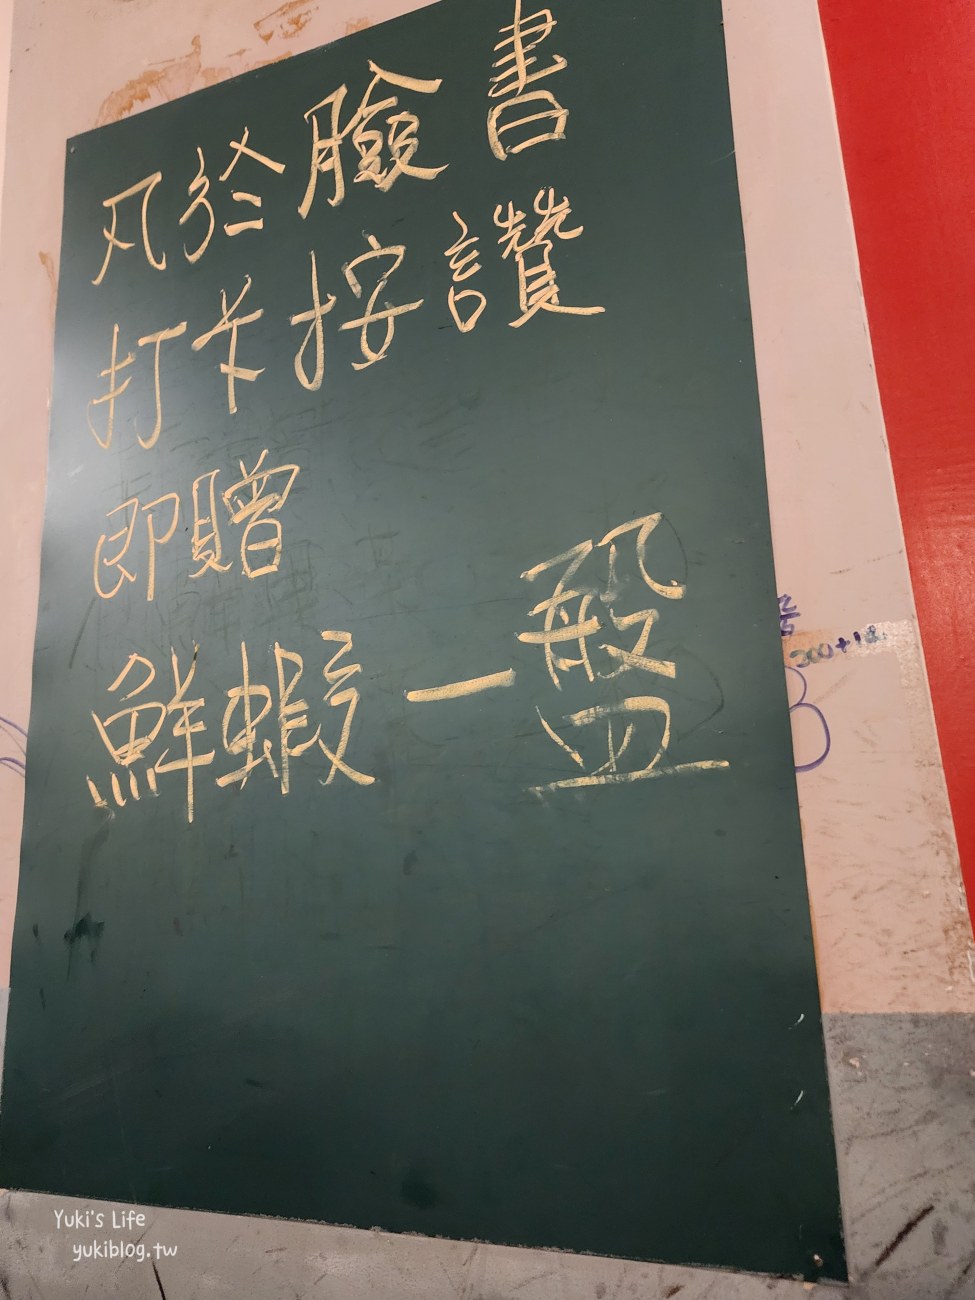 凡於臉書
打卡按讚
即贈
鮮蝦一盤
300+1
Yuki's Life
yukiblog.tw